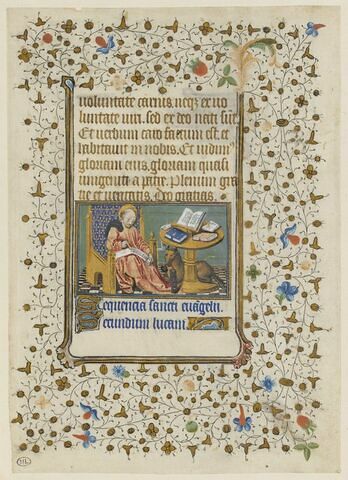 uoluntate carnis, neq; ex uo
luntate uiri. sed ex deo nati sūt
Et uerbum caro factum est. et
habitauit in nobis. Et uidim⁹
gloriam eius, gloriam quasi
unigeniti a patre. Plenum gra
tie et ueritatis. Deo gratias.
Sequencia sancti euāgelii.
secundum lucam.